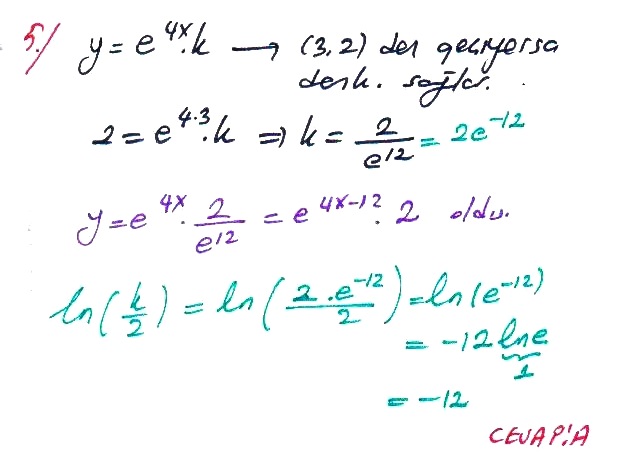 5.) y = e^{4x}.k → (3,2) den geçiyorsa
denk. sağlar.
2 = e^{4.3}.k ⇒ k = \frac{2}{e^{12}} = 2e^{-12}
y = e^{4x}. \frac{2}{e^{12}} = e^{4x-12}. 2 oldu.
ln(\frac{k}{2}) = ln(\frac{2.e^{-12}}{2}) = ln(e^{-12})
= -12 lne
1
= -12
CEVAP:A